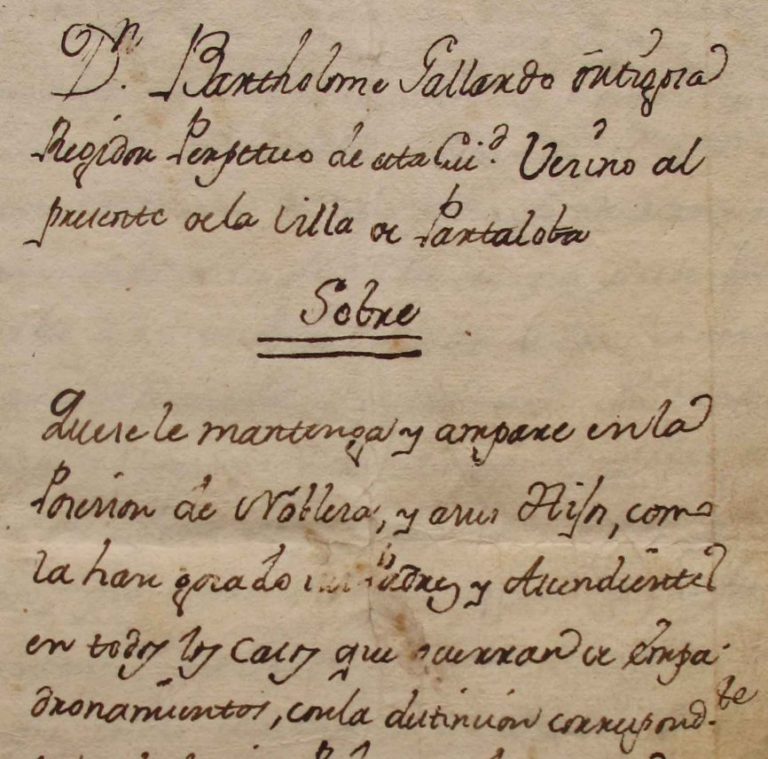 Dn. Bartholome Gallardo Ontigoza
Regidor Perpetuo de esta Ciud. Vezino al
presente de la Villa de Pantaloba
Sobre
Quese le mantenga y ampare en la
Posesion de Nobleza, y a sus Hijos, como
la han gozado sus Padres y Ascendientes
en todos los Casos que ocurran de Empa
dronamientos, con la distincion correspond.te